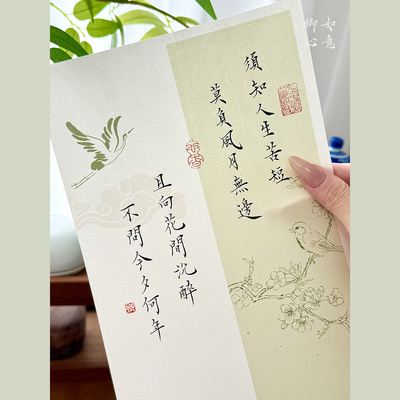 須知人生苦短
莫負風月無邊
且向花間沉醉
不問今夕何年
卿如
心意